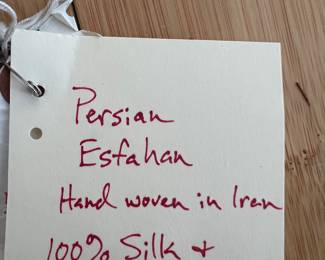 Persian
Esfahan
Hand woven in Iran
100% Silk +